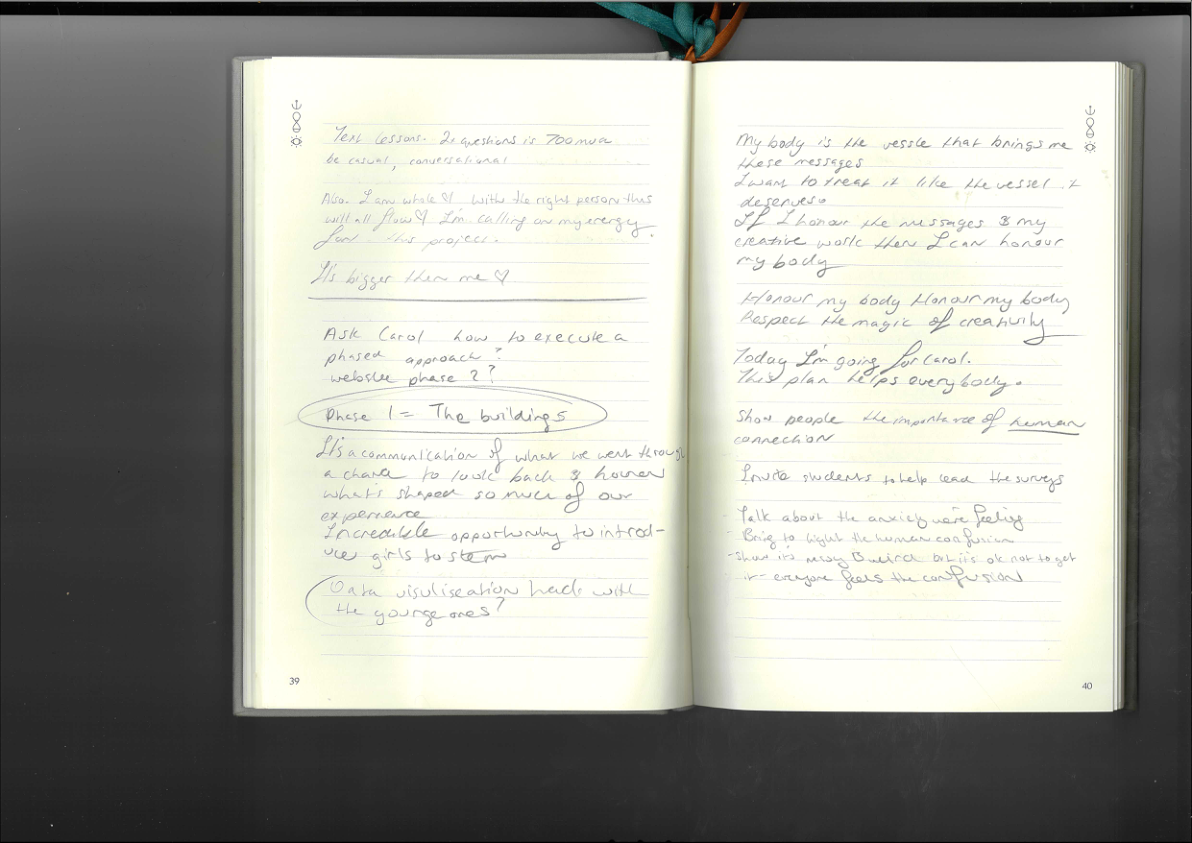 Text lessons. 2x questions is TOO much
be casual, conversational
Also. I am whole ♡ with the right person this
will all flow ♡ I'm calling on my energy
for this project.
It's bigger then me ♡
Ask Carol how to execute a
phased approach?
website phase 2?
Phase 1 = The buildings
It's a communication of what we went through
a chance to look back & honour
what's shaped so much of our
experience
Incredible opportunity to introd-
uce girls to stem
Data visulisation hack with
the younge ones?
39
My body is the vessle that brings me
these messages
I want to treat it like the vessel it
deserves.
If I honour the messages & my
creative work then I can honour
my body
Honour my body Honour my body
Respect the magic of creativity
Today I'm going for Carol.
This plan helps everybody.
Show people the importance of human
connection
Invite students to help lead the surveys
Talk about the anxiety we're feeling
- Bring to light the human confusion
- show it's messy & weird but it's ok not to get
it - everyone feels the confusion
40